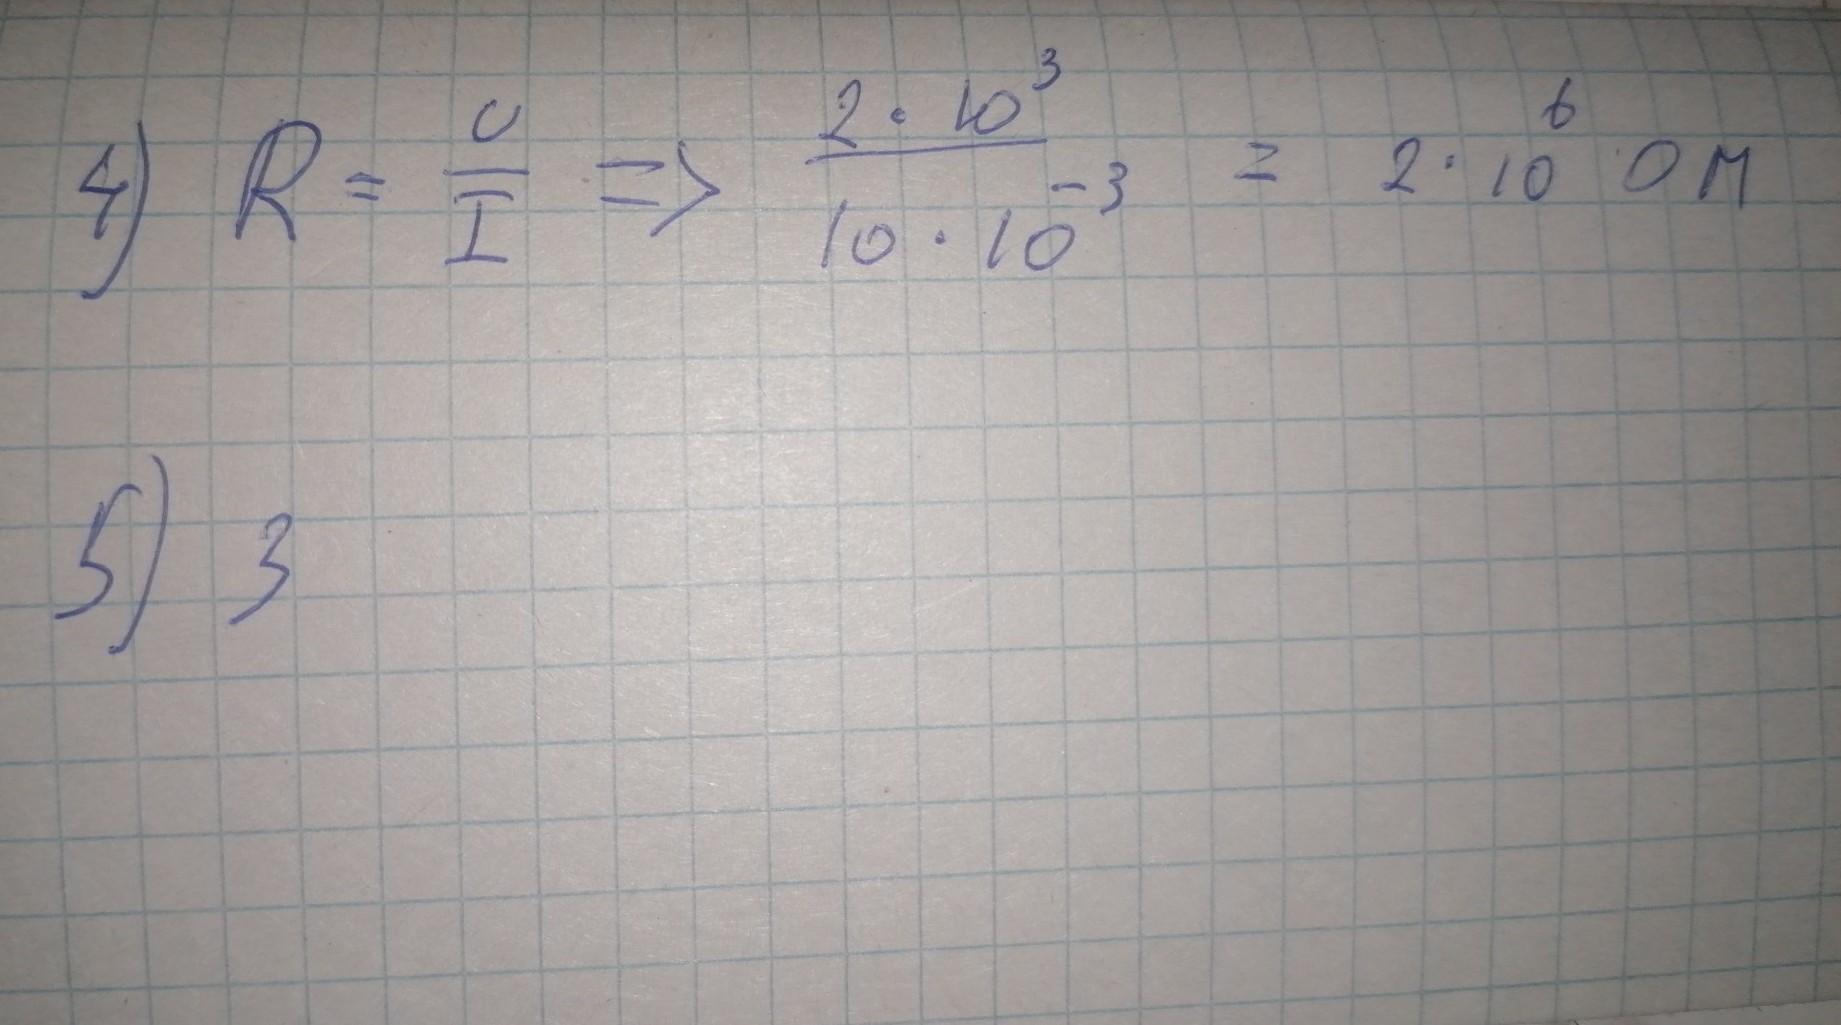 4) R = U/I => 2 · 10³ / 10 · 10⁻³ = 2 · 10⁶ Ом
5) 3